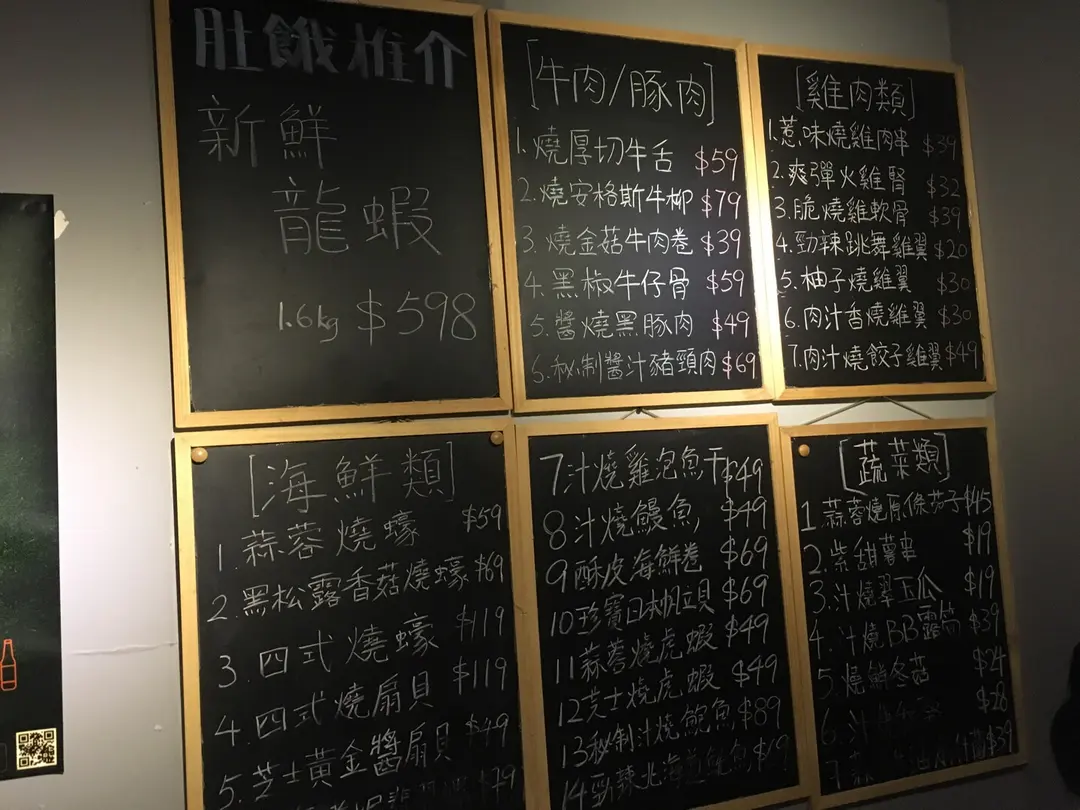 肚餓推介
新鮮
龍蝦
1.6kg $598
[牛肉/豚肉]
1.燒厚切牛舌 $59
2.燒安格斯牛柳 $79
3.燒金菇牛肉卷 $39
4.黑椒牛仔骨 $59
5.醬燒黑豚肉 $49
6.秘制醬汁豬頸肉 $69
[雞肉類]
1.惹味燒雞肉串 $39
2.爽彈火雞腎 $32
3.脆燒雞軟骨 $39
4.勁辣跳舞雞翼 $20
5.柚子燒雞翼 $30
6.肉汁香燒雞翼 $30
7.肉汁燒餃子雞翼 $49
[海鮮類]
1.蒜蓉燒蠔 $59
2.黑松露香菇燒蠔 $69
3.四式燒蠔 $119
4.四式燒扇貝 $119
5.芝士黃金醬扇貝 $49
$79
7汁燒雞泡魚干 $49
8汁燒鰻魚 $49
9酥皮海鮮卷 $69
10珍寶日本帆立貝 $69
11蒜蓉燒虎蝦 $49
12芝士燒虎蝦 $49
13秘制汁燒鮑魚 $89
14勁辣北海道魷魚
[蔬菜類]
1蒜蓉燒原條茄子 $45
2.紫甜薯串 $19
3.汁燒翠玉瓜 $19
4.汁燒BB露筍 $39
5.燒鮮冬菇 $24
6.汁 $28
7 $39